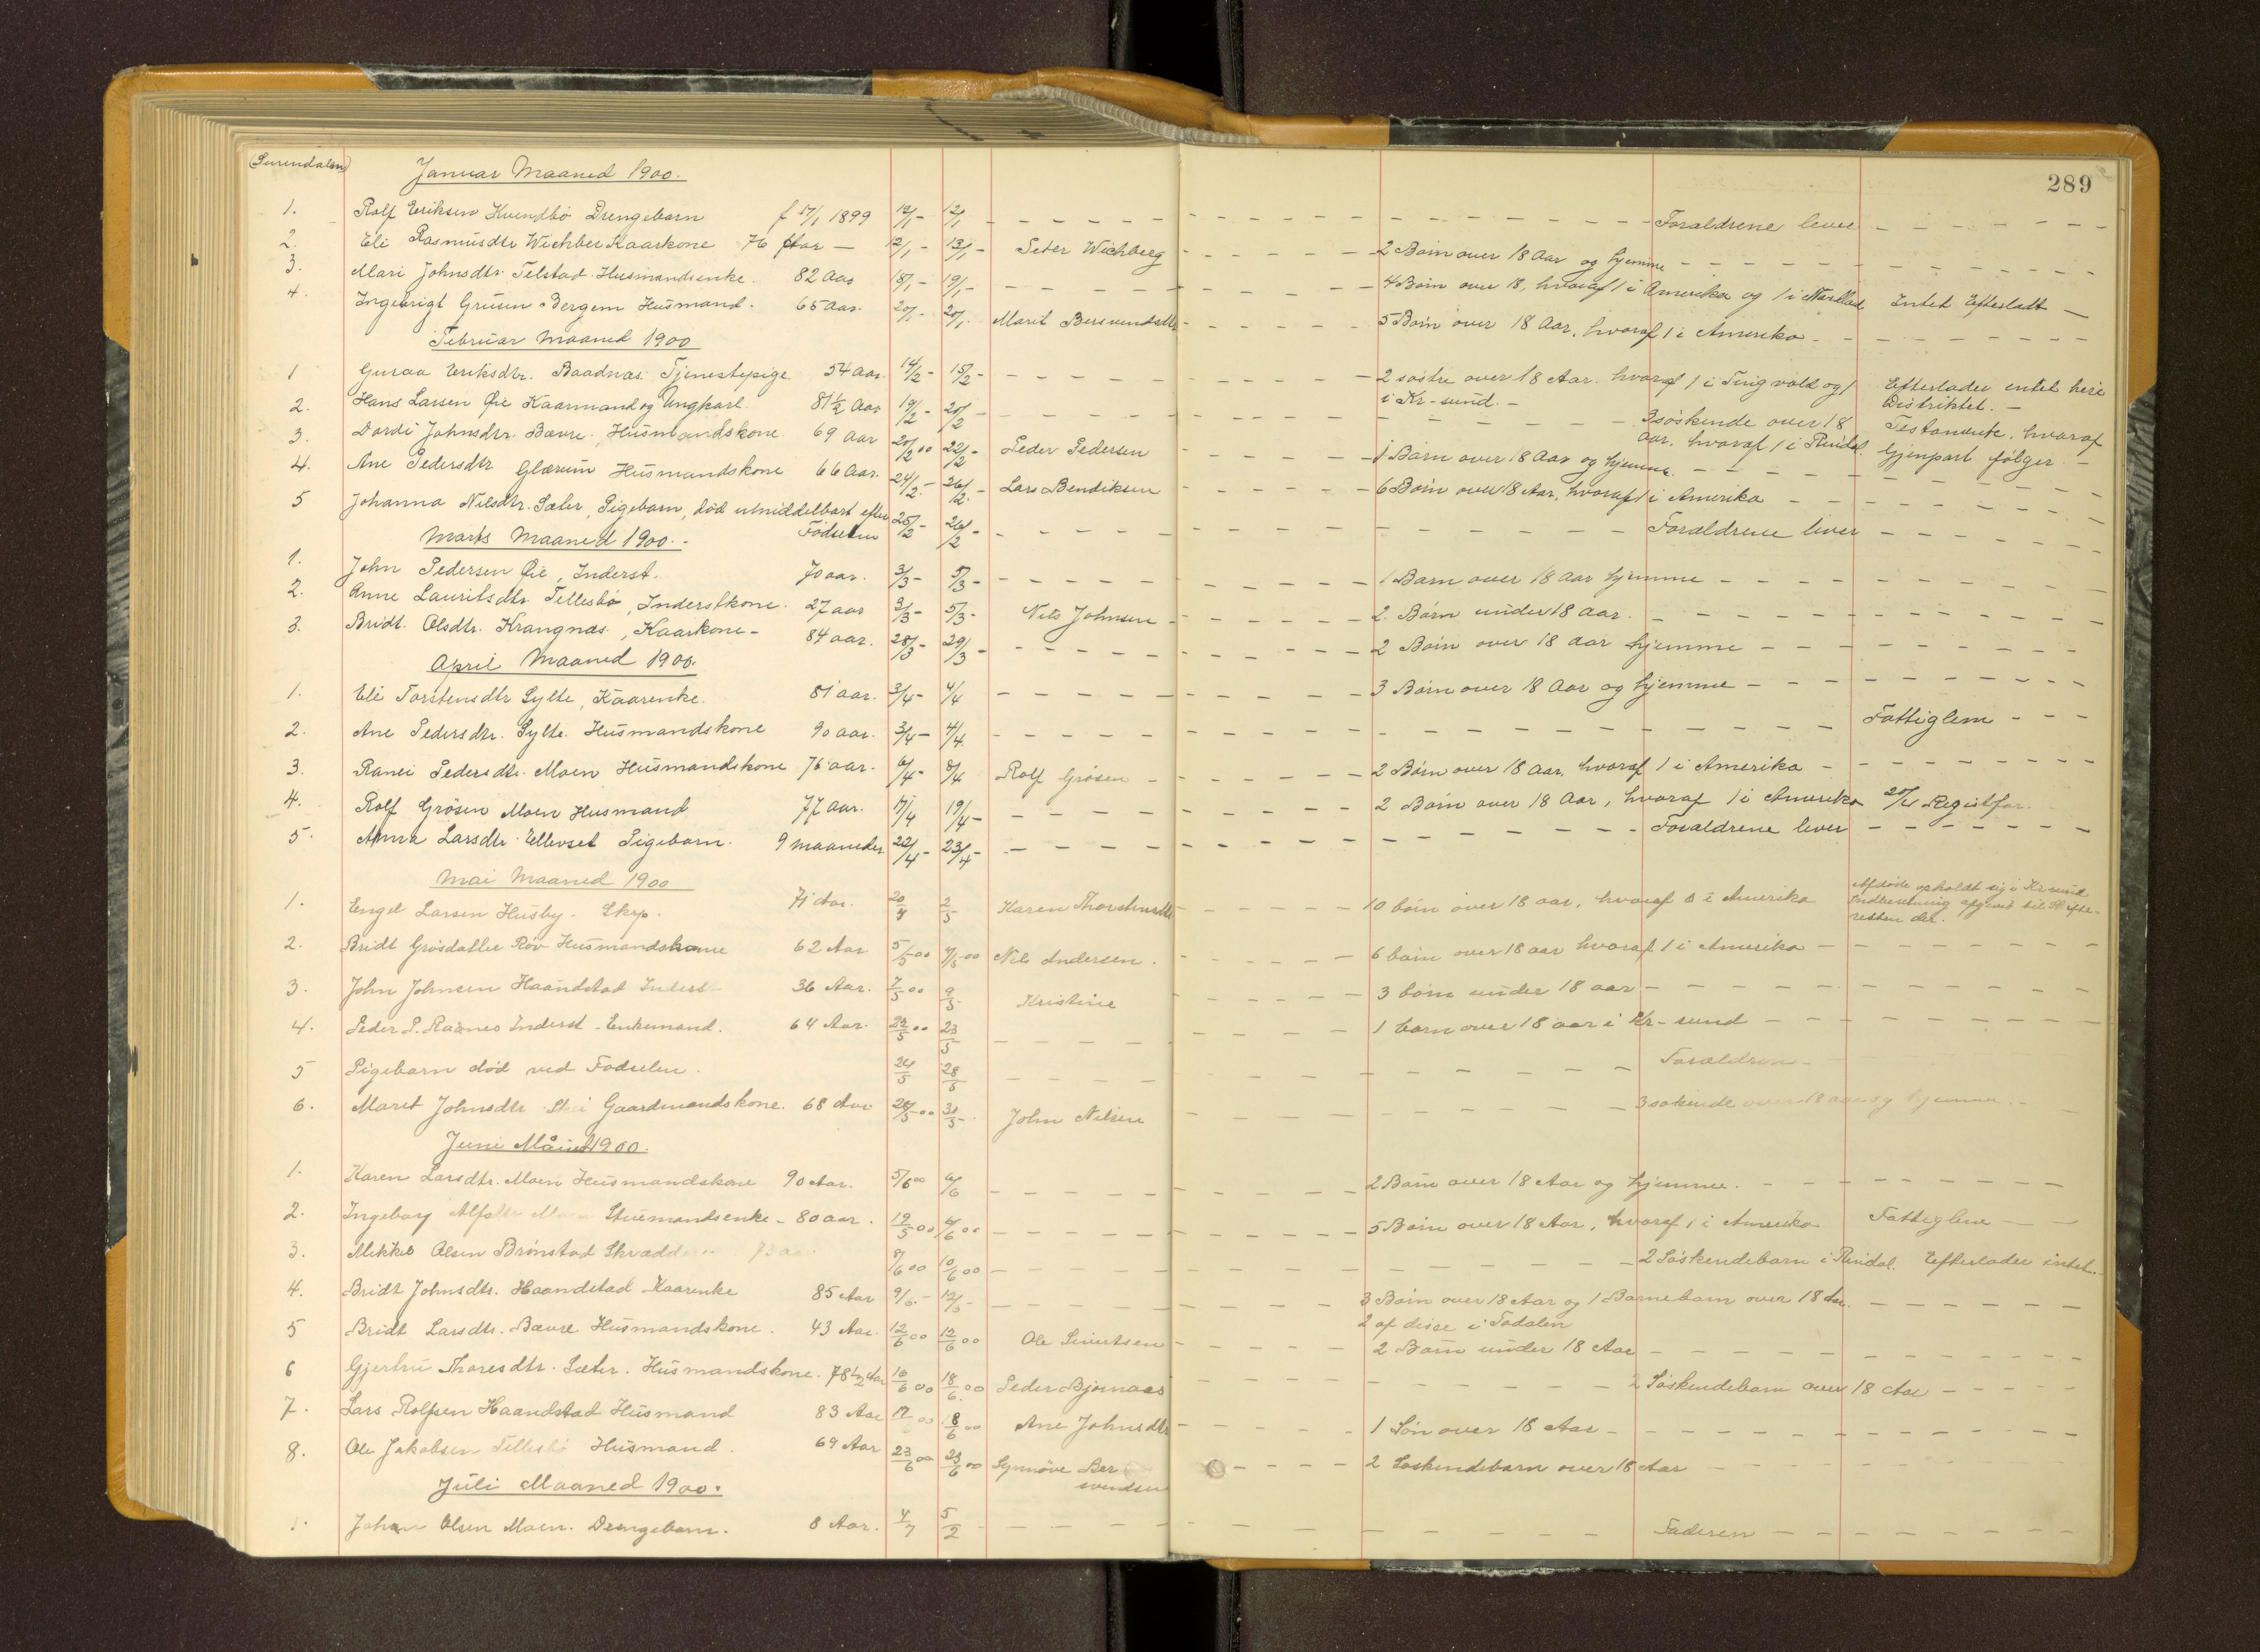 (Surendalen)
289
Januar Maaned 1900.
1. Rolf Eriksen Kvendbö Drengebarn f 17/1 1899 12/1 - 12/1 - Foraldrene lever
2. Eli Rasmusdtr Wichber Kaarkone 76 Aar - 12/1 - 13/1 - Peter Wichberg 2 Börn over 18 Aar og hjemme
3. Mari Johnsdtr. Telstad. Husmandsenke. 82 Aar 18/1 - 19/1 - 4 Börn over 18, hvoraf 1 i Amerika og 1 i Intet Efterladt -
4. Ingebrigt Grusen Bergem Husmand. 65 Aar. 20/1 - 20/1. Marit Bersvendsdtr 5 Börn over 18 Aar, hvoraf 1 i Amerika
Februar Maaned 1900
1 Guraa Eriksdtr. Baadnæs. Tjenestepige 54 Aar. 14/2 - 15/2 - 2 söstre over 18 Aar. hvoraf 1 i Tingvold og 1 Efterlader intet here
i Kr-sund. - Distriktet. -
2. Hans Larsen Öie Kaarmand og Ungkarl. 81 1/2 Aar 19/2 - 20/2 - 3 söskende over 18 Testamente, hvoraf
aar, hvoraf 1 i Rindal. Gjenpart fölger -
3. Dordi Johnsdtr. Bævre. Husmandskone. 69 Aar 20/2 00 22/2 - Peder Pedersen 1 Barn over 18 Aar og hjemme
4. Ane Pedersdtr Glærum Husmandskone 66 Aar. 24/2. - 26/2. - Lars Bendiksen 6 Börn over 18 Aar, hvoraf 1 i Amerika
5 Johanna Nilsdtr. Sæter, Pigebarn, död umiddelbart efter 25/2 - 26/2 - Foraldrene lever
Födselen
Marts Maaned 1900. -
1. John Pedersen Öie, Inderst. 70 aar. 3/3 - 5/3 - 1 Barn over 18 Aar hjemme
2. Anne Lauritsdtr Tellesbö, Inderstkone. 27 aar 3/3 - 5/3 - Nils Johnsen 2. Börn under 18 Aar.
3. Bridt. Olsdtr. Krangnæs, Kaarkone - 84 aar. 28/3 29/3 - 2 Börn over 18 Aar hjemme
April Maaned 1900.
1. Eli Torstensdtr Sylte, Kaarenke. 81 aar. 3/4 - 4/4 3 Börn over 18 Aar og hjemme
2. Ane Pedersdtr. Sylte. Husmandskone 90 aar. 3/4 - 4/4. Fattiglem
3. Ranei Pedersdtr. Moen Husmandskone 76 aar. 6/4 - 8/4 Rolf Grösen 2 Börn over 18 Aar, hvoraf 1 i Amerika
4. Rolf Grösen Moen Husmand 77 Aar. 17/4 19/4 - 2 Börn over 18 Aar, hvoraf 1 i Amerika 20/4 Registfor.
5. Anna Larsdtr. Ellevset Pigebarn. 9 maaneder 22/4 - 23/4 - Foraldrene lever
Mai Maaned 1900
1. Engel Larsen Husby. Skp. 71 Aar. 20/4 2/5 Karen Thorstensdtr 10 börn over 18 aar, hvoraf 8 i Amerika Afdöde opholdt sig i Kr sund
Indberetning afgivet til Skifte-
retten der.
2. Bridt Grösdatter Röv Husmandskone 62 Aar 5/5 00 7/5 00 Nils Andersen. 6 börn over 18 aar hvoraf 1 i Amerika
3. John Johnsen Haandstad Inderst 36 Aar. 7/5 00 9/5 Kristine 3 börn under 18 aar
4. Peder P. Ranes Inderst - Enkemand. 64 Aar. 22/5 00 23/5 1 barn over 18 aar i Kr-sund
5 Pigebarn död ved Fødselen. 24/5 28/5 Foraldren
6. Marit Johnsdtr Skei Gaardmandskone. 68 Aar 28/5 00 30/5 - John Nilsen 3 sökende over 18 aar og hjemme.
Juni Måned 1900.
1. Karen Larsdtr. Moen Husmandskone 90 Aar. 5/6 00 6/6 2 Börn over 18 Aar og hjemme.
2. Ingeborg Husmandsenke - 80 aar. 19/5 00 4/6 00 5 Börn over 18 Aar, hvoraf 1 i Amerika Fattiglem
3. Mikkel Olsen Brönstad Skrædder 73 8/6 00 10/6 00 2 Söskendebarn i Rindal. Efterlader intet.
4. Bridt Johnsdtr. Haandstad Kaarenke 85 Aar 9/5. - 12/5 - 3 Börn over 18 Aar og 1 Barnebarn over 18 Aar.
2 af disse i Todalen
5 Bridt Larsdtr. Bævre Husmandskone. 43 Aar. 12/6 00 12/6 00 Ole Sivertsen 2 Börn under 18 Aar
6 Gjertru Tharesdtr. Sæter. Husmandskone. 78 1/2 Aar 16/6 00 18/6. 00 Peder Bjørnaas 2 Söskendebarn over 18 Aar
7. Lars Rolfsen Haandstad Husmand 83 Aar 17 00 18/6 00 Ane Johnsdtr 1 Sön over 18 Aar
8. Ole Jakobsen Tellesbö Husmand. 69 Aar 23/6 00 23/6 00 Synnöve Ber 2 Söskendebarn over 18 Aar
svendsen
Juli Maaned 1900.
1. Johan Olsen Moen. Drengebarn. 8 Aar. 4/7 5/2 Faderen